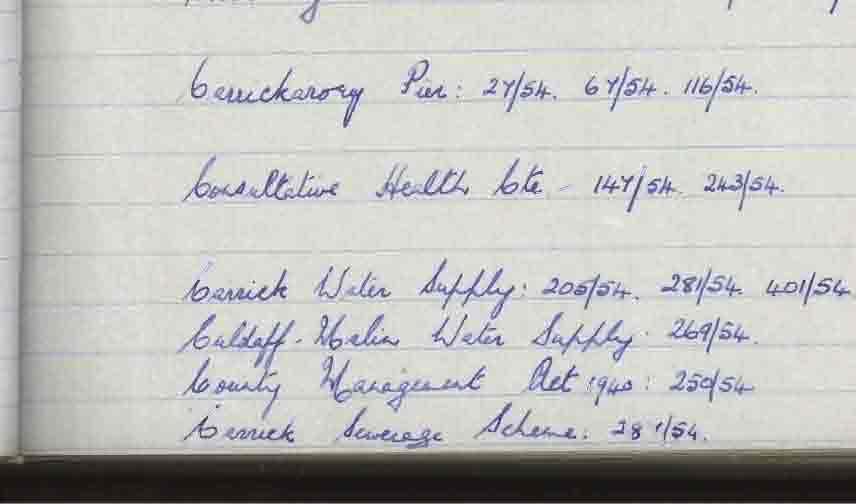 Carrickarory Pier: 27/54. 67/54. 116/54.
Consultative Health Cte - 147/54. 243/54.
Carrick Water Supply: 205/54. 281/54. 401/54
Culdaff-Malin Water Supply. 269/54.
County Management Act 1940: 250/54
Carrick Sewerage Scheme: 281/54.